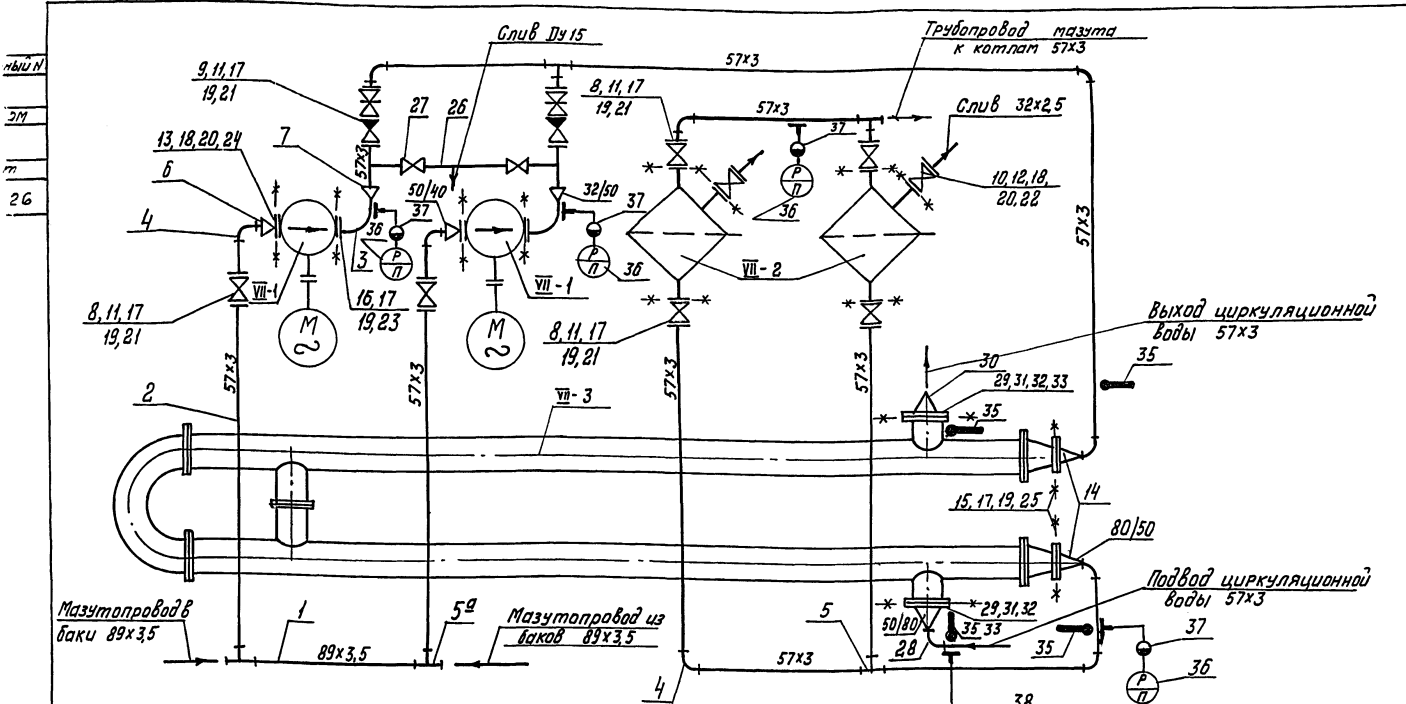 ный N
эм
т
26
Слив Ду 15
Трубопровод мазута
к котлам 57×3
57×3
9, 11, 17
19, 21
8, 11, 17
19, 21
57×3
Слив 32×2,5
27
26
13, 18, 20, 24
7
57×3
37
6
50/40
32/50
Р
П
36
10, 12, 18,
20, 22
4
37
36
Р
П
3
37
Р
П
36
57×3
VII-1
VII-1
VII-2
8, 11, 17
19, 21
16, 17
19, 23
М
~
М
~
8, 11, 17
19, 21
Выход циркуляционной
воды 57×3
57×3
57×3
57×3
57×3
30
29, 31, 32, 33
35
35
2
VII-3
15, 17, 19, 25
14
80/50
Подвод циркуляционной
воды 57×3
Мазутопровод в
баки 89×3,5
1
5а
Мазутопровод из
баков 89×3,5
5
50/80
29, 31, 32
33
35
28
35
37
89×3,5
57×3
4
38
Р
П
36